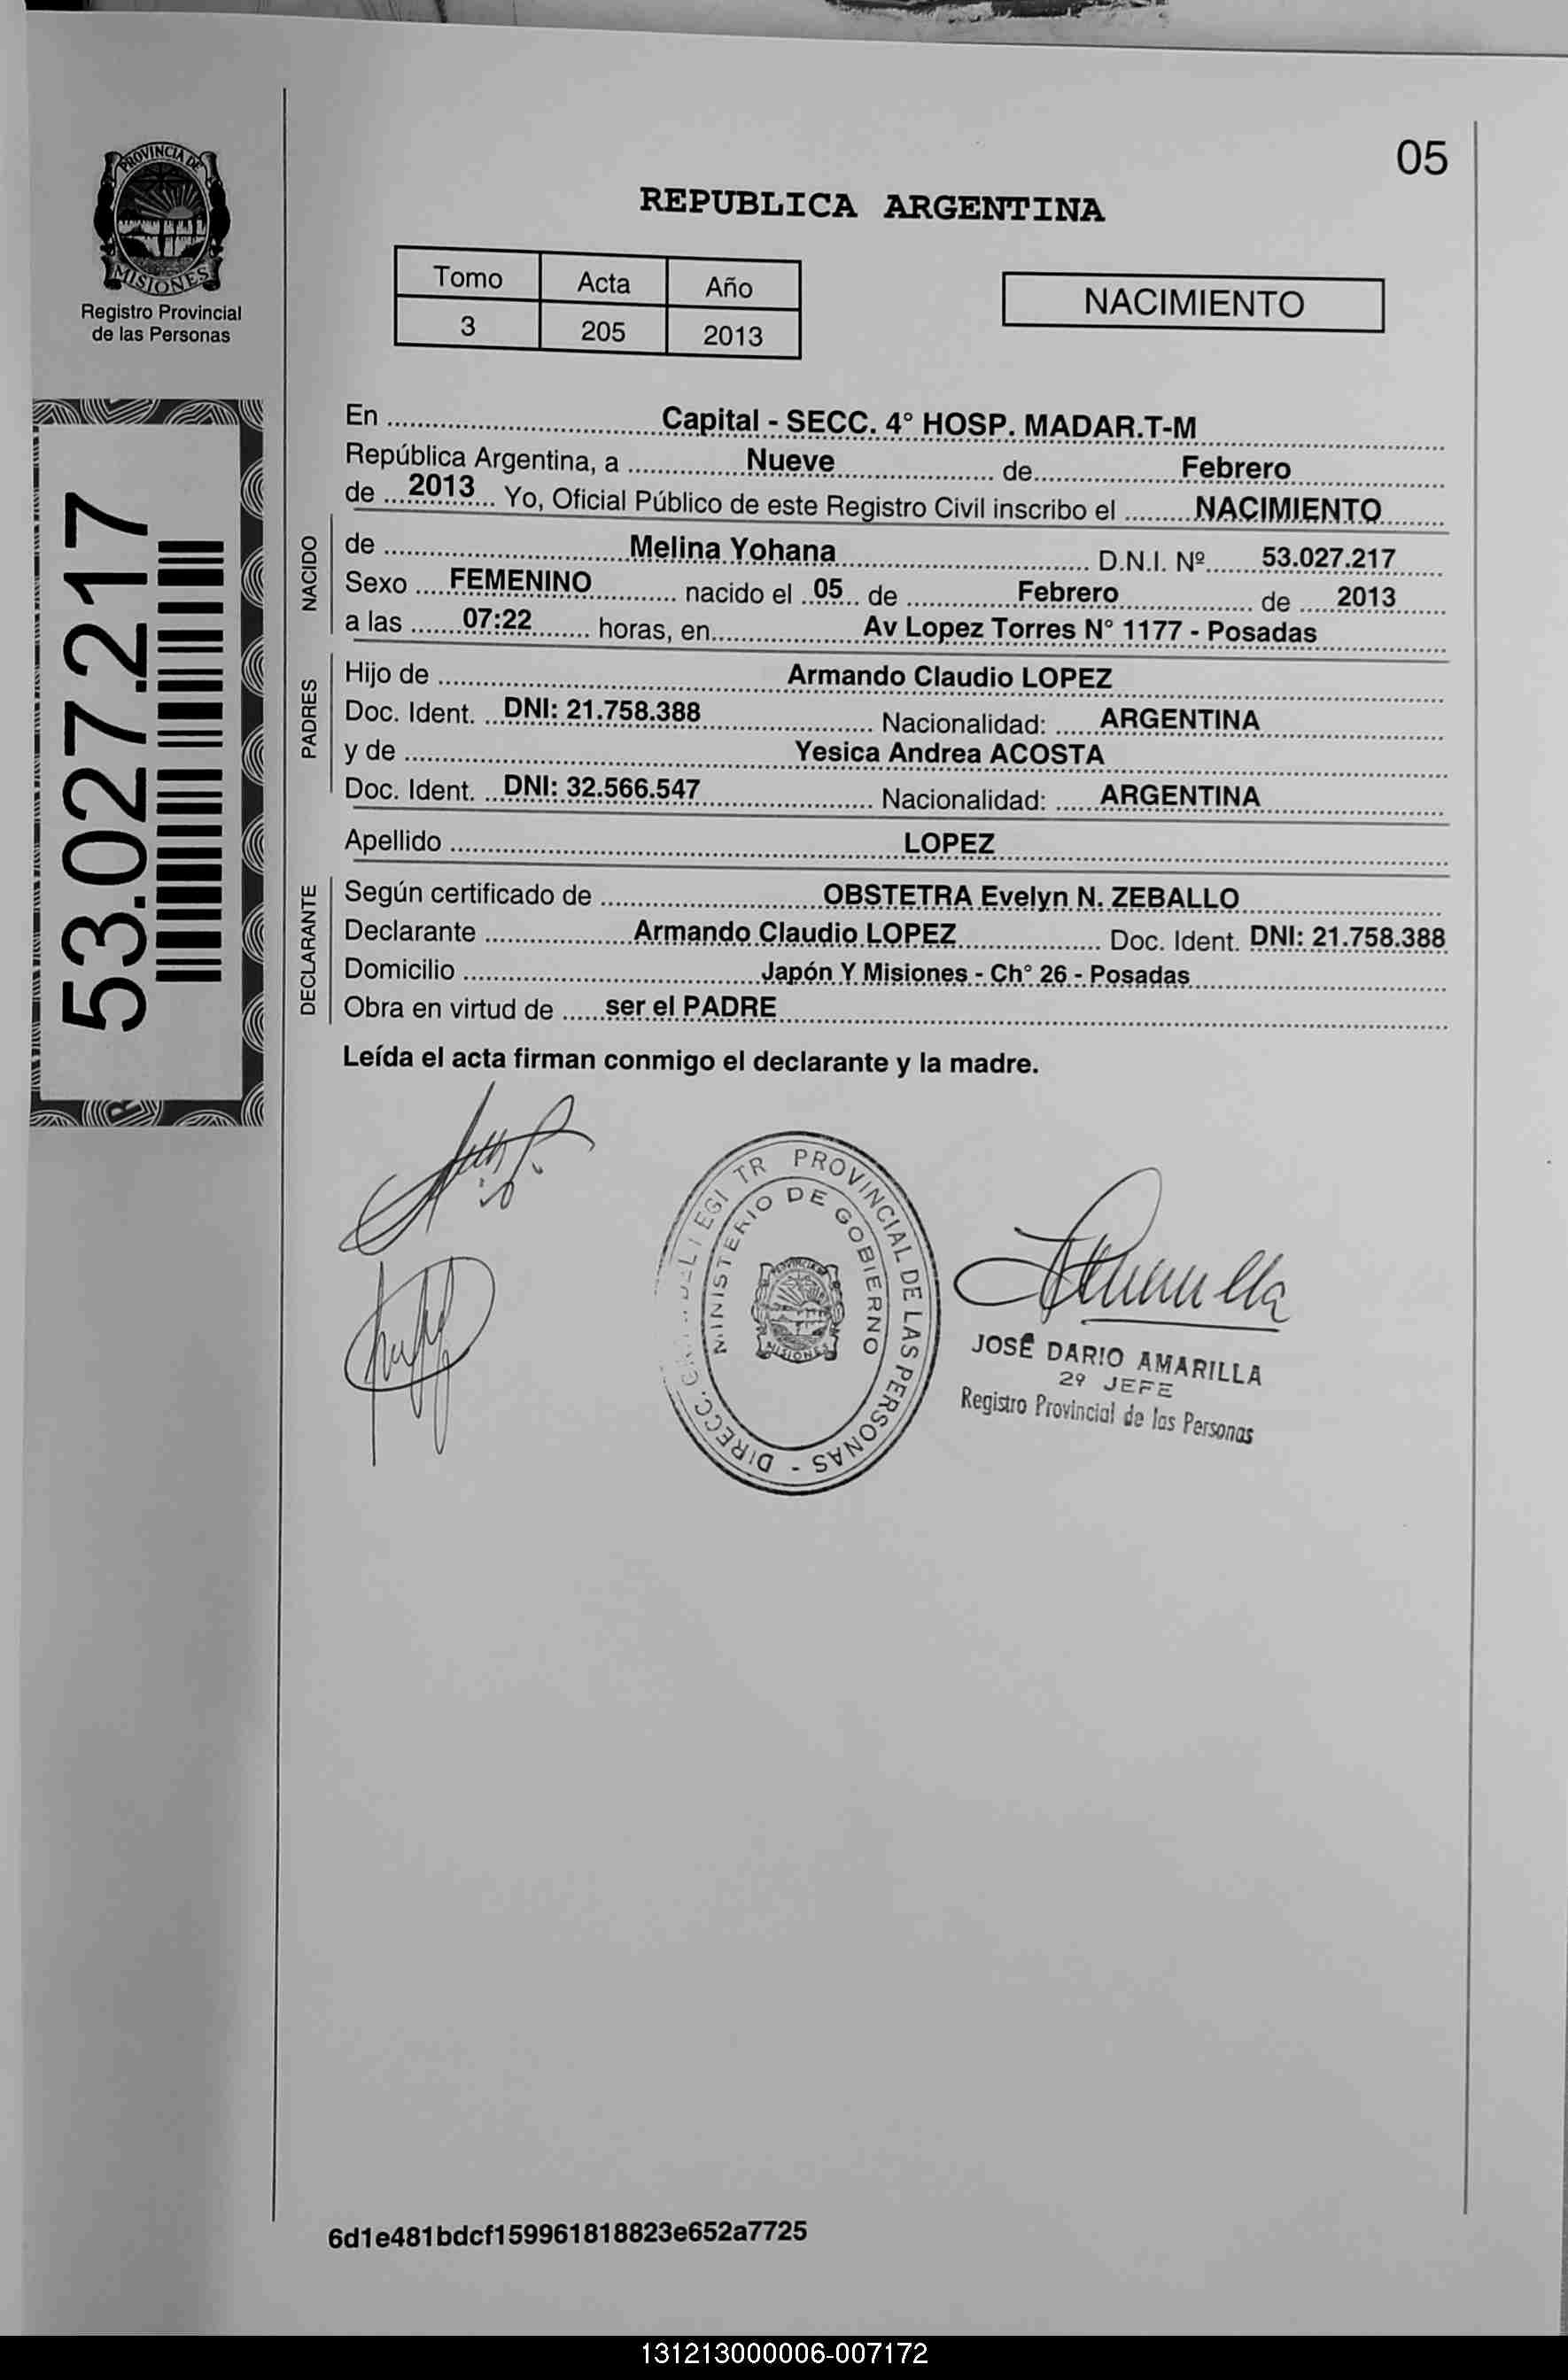 05
PROVINCIA DE
MISIONES
Registro Provincial
de las Personas
REPUBLICA ARGENTINA
Tomo Acta Año
3 205 2013
NACIMIENTO
53.027.217
En Capital - SECC. 4° HOSP. MADAR.T-M
República Argentina, a Nueve de Febrero
de 2013 Yo, Oficial Público de este Registro Civil inscribo el NACIMIENTO
NACIDO
de Melina Yohana D.N.I. Nº 53.027.217
Sexo FEMENINO nacido el 05 de Febrero de 2013
a las 07:22 horas, en Av Lopez Torres N° 1177 - Posadas
PADRES
Hijo de Armando Claudio LOPEZ
Doc. Ident. DNI: 21.758.388 Nacionalidad: ARGENTINA
y de Yesica Andrea ACOSTA
Doc. Ident. DNI: 32.566.547 Nacionalidad: ARGENTINA
Apellido LOPEZ
DECLARANTE
Según certificado de OBSTETRA Evelyn N. ZEBALLO
Declarante Armando Claudio LOPEZ Doc. Ident. DNI: 21.758.388
Domicilio Japón Y Misiones - Ch° 26 - Posadas
Obra en virtud de ser el PADRE
Leída el acta firman conmigo el declarante y la madre.
PROVINCIAL DE LAS PERSONAS - DIRECC.
MINISTERIO DE GOBIERNO
MISIONES
JOSÉ DARIO AMARILLA
2º JEFE
Registro Provincial de las Personas
6d1e481bdcf159961818823e652a7725
131213000006-007172